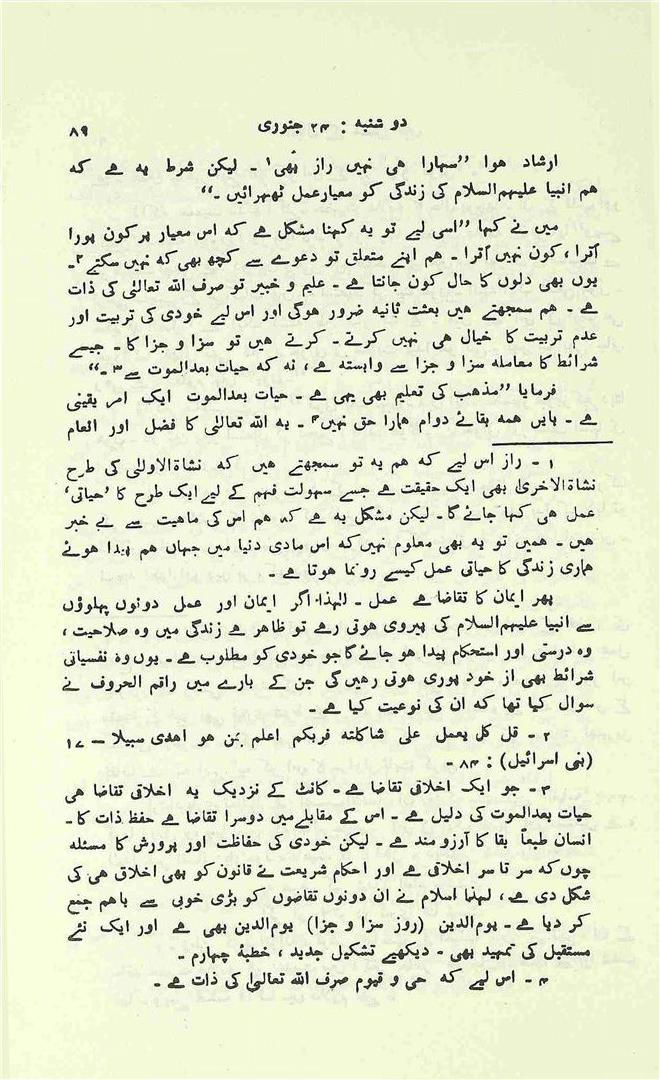 دو شنبہ : ۲۴ جنوری ۸۹
ارشاد ہوا ”سہارا ہی نہیں راز بھی۱ ۔ لیکن شرط یہ ہے کہ
ہم انبیا علیہم السلام کی زندگی کو معیار عمل ٹھہرائیں ۔“
میں نے کہا ”اسی لیے تو یہ کہنا مشکل ہے کہ اس معیار پر کون پورا
اُترا ، کون نہیں اُترا ۔ ہم اپنے متعلق تو دعوے سے کچھ بھی کہ نہیں سکتے۲۔
یوں بھی دلوں کا حال کون جانتا ہے ۔ علیم و خبیر تو صرف اللہ تعالیٰ کی ذات
ہے ۔ ہم سمجھتے ہیں بعثت ثانیہ ضرور ہوگی اور اس لیے خودی کی تربیت اور
عدم تربیت کا خیال ہی نہیں کرتے ۔ کرتے ہیں تو سزا و جزا کا ۔ جیسے
شرائط کا معاملہ سزا و جزا سے وابستہ ہے ، نہ کہ حیات بعدالموت سے۳ ۔“
فرمایا ”مذہب کی تعلیم بھی یہی ہے ۔ حیات بعدالموت ایک امر یقینی
ہے ۔ بایں ہمہ بقائے دوام ہمارا حق نہیں۴ ۔ یہ اللہ تعالیٰ کا فضل اور انعام
۱ ۔ راز اس لیے کہ ہم یہ تو سمجھتے ہیں کہ نشاۃ الاولیٰ کی طرح
نشاۃ الاخریٰ بھی ایک حقیقت ہے جسے سہولت فہم کے لیے ایک طرح کا ’حیاتی‘
عمل ہی کہا جائے گا ۔ لیکن مشکل یہ ہے کہ ہم اس کی ماہیت سے بے خبر
ہیں ۔ ہمیں تو یہ بھی معلوم نہیں کہ اس مادی دنیا میں جہاں ہم پیدا ہوئے
ہماری زندگی کا حیاتی عمل کیسے رونما ہوتا ہے ۔
پھر ایمان کا تقاضا ہے عمل ۔ لہٰذا اگر ایمان اور عمل دونوں پہلوؤں
سے انبیا علیہم السلام کی پیروی ہوتی رہے تو ظاہر ہے زندگی میں وہ صلاحیت ،
وہ درستی اور استحکام پیدا ہو جائے گا جو خودی کو مطلوب ہے ۔ یوں وہ نفسیاتی
شرائط بھی از خود پوری ہوتی رہیں گی جن کے بارے میں راقم الحروف نے
سوال کیا تھا کہ ان کی نوعیت کیا ہے ۔
۲ ۔ قل کل یعمل علی شاکلتہ فربکم اعلم بمن ھو اھدی سبیلا — ۱۷
(بنی اسرائیل) : ۸۴ ۔
۳ ۔ جو ایک اخلاق تقاضا ہے ۔ کانٹ کے نزدیک یہ اخلاق تقاضا ہی
حیات بعدالموت کی دلیل ہے ۔ اس کے مقابلے میں دوسرا تقاضا ہے حفظ ذات کا ۔
انسان طبعاً بقا کا آرزو مند ہے ۔ لیکن خودی کی حفاظت اور پرورش کا مسئلہ
چوں کہ سر تا سر اخلاق ہے اور احکام شریعت نے قانون کو بھی اخلاق ہی کی
شکل دی ہے ، لہٰذا اسلام نے ان دونوں تقاضوں کو بڑی خوبی سے باہم جمع
کر دیا ہے ۔ یوم الدین (روز سزا و جزا) یوم الدین بھی ہے اور ایک نئے
مستقبل کی تمہید بھی ۔ دیکھیے تشکیل جدید ، خطبۂ چہارم ۔
۴ ۔ اس لیے کہ حی و قیوم صرف اللہ تعالیٰ کی ذات ہے ۔